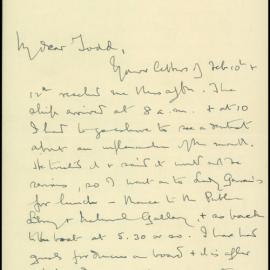 My dear Todd,
Yours letters of Feb 10th &
12th reached me this aft. The
ship arrived at 8 a.m. & at 10
I had to go ashore to see a dentist
about an inflammation of the mouth.
He treated it & said it would not be
serious, so I went on to Lady
for lunch — thence to the Public
Library & National Gallery & so back
to the boat at 5.30 or so. I have had
guests for dinner on board & it is after